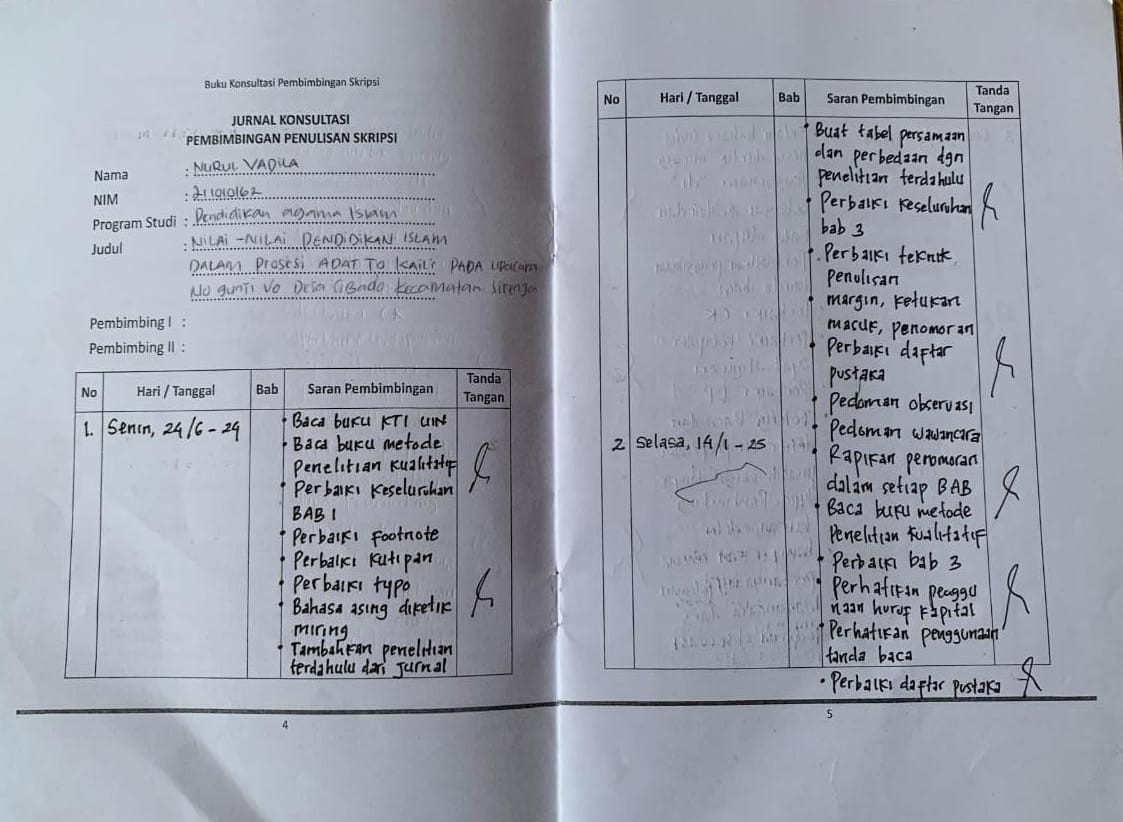 Buku Konsultasi Pembimbingan Skripsi
JURNAL KONSULTASI
PEMBIMBINGAN PENULISAN SKRIPSI
Nama : NURUL VADILA
NIM : 211010162
Program Studi : Pendidikan agama Islam
Judul : NILAI-NILAI PENDIDIKAN ISLAM
DALAM PROSESI ADAT TO KAILI PADA Upacara
NO gunti VO Desa Kecamatan Sirenja
Pembimbing I :
Pembimbing II :
No Hari / Tanggal Bab Saran Pembimbingan Tanda Tangan
1. Senin, 24/6-24 • Baca buku KTI UIN
• Baca buku metode
Penelitian kualitatif
• Perbaiki Keseluruhan
BAB 1
• Perbaiki footnote
• Perbaiki kutipan
• Perbaiki typo
• Bahasa asing diketik
miring
• Tambahkan penelitian
terdahulu dari jurnal
4
No Hari / Tanggal Bab Saran Pembimbingan Tanda Tangan
• Buat tabel persamaan
dan perbedaan dgn
penelitian terdahulu
• Perbaiki Keseluruhan
bab 3
• Perbaiki teknik
penulisan
• margin, ketukan
masuk, penomoran
• Perbaiki daftar
pustaka
• Pedoman observasi
• Pedoman wawancara
2 Selasa, 14/1-25 • Rapikan penomoran
dalam setiap BAB
• Baca buku metode
Penelitian kualitatif
• Perbaiki bab 3
• Perhatikan penggu
naan huruf kapital
• Perhatikan penggunaan
tanda baca
• Perbaiki daftar pustaka
5